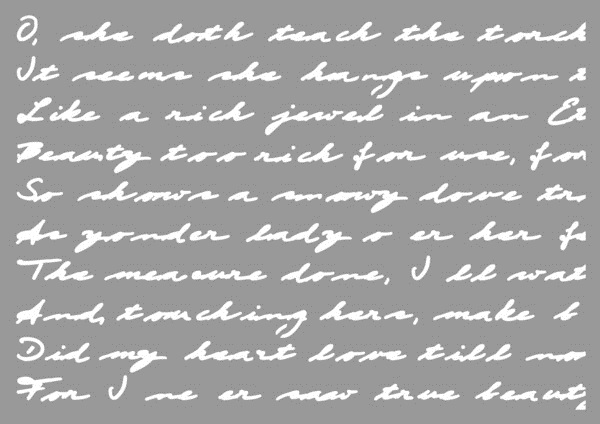 O, she doth teach the torch
It seems she hangs upon
Like a rich jewel in an Et
Beauty too rich for use, for
So shows a snowy dove tro
As yonder lady o er her fe
The measure done, I ll wat
And, touching hers, make b
Did my heart love till now
For I ne er saw true beauty